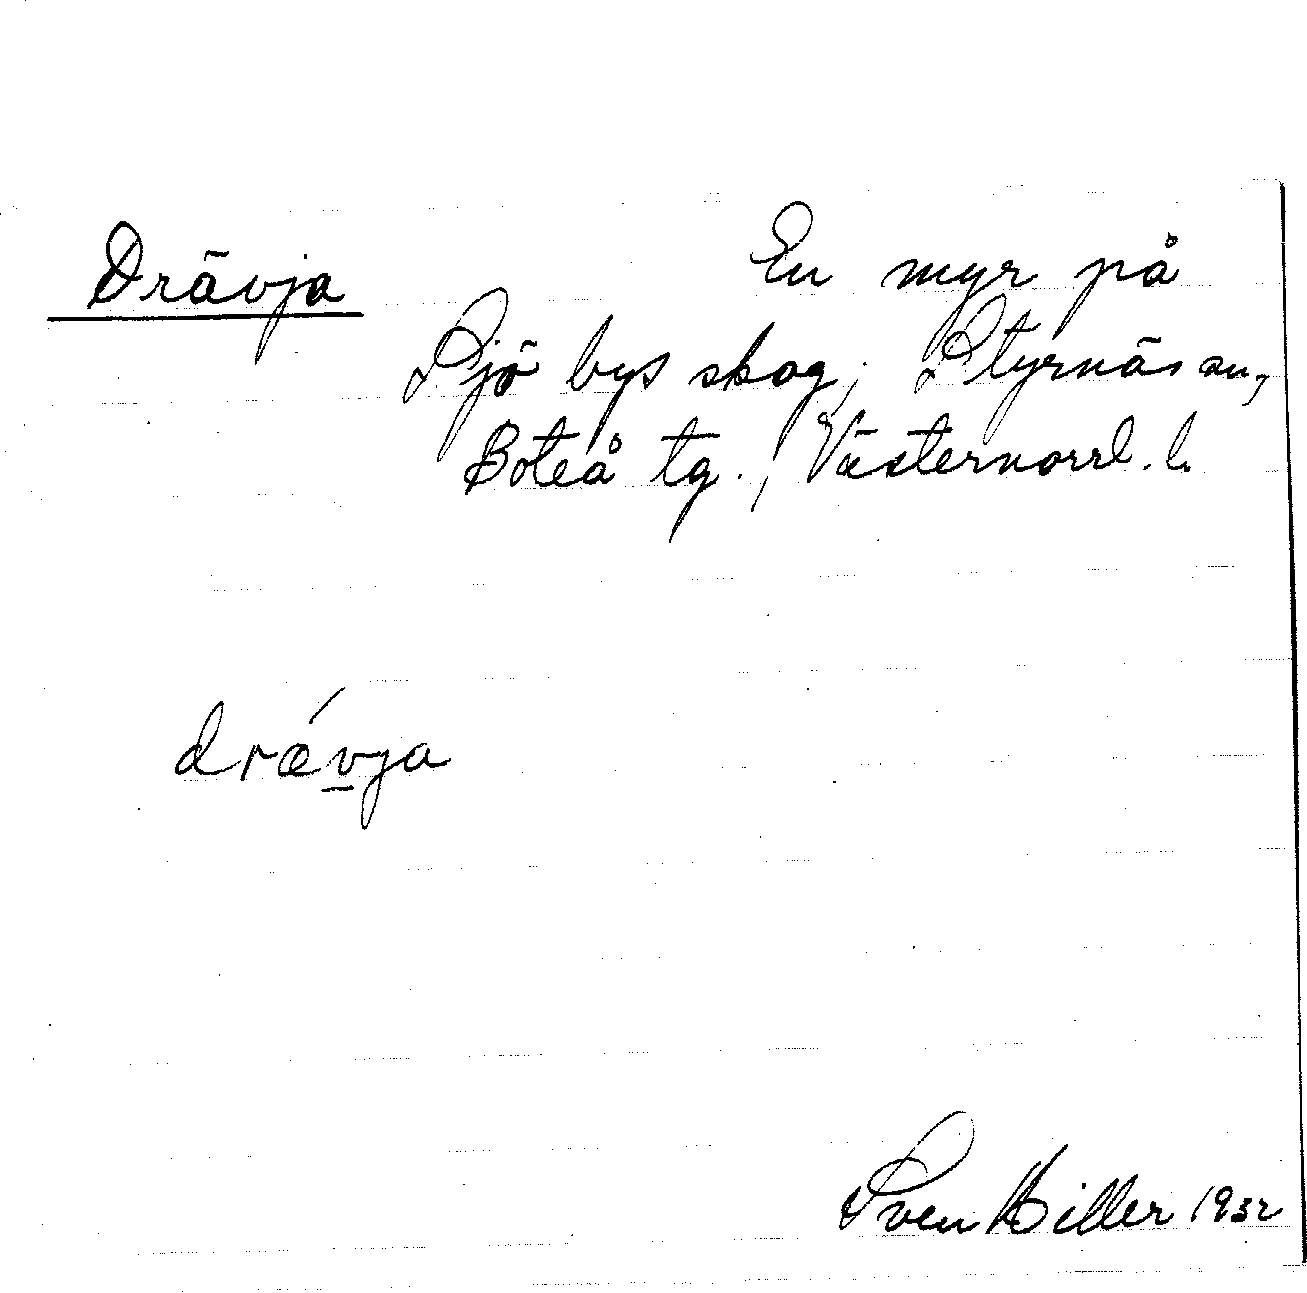 Drävja
En myr på
Sjö bys skog, Styrnäs sn,
Boteå tg., Västernorrl. l.
drævja
Sven Hiller 1932